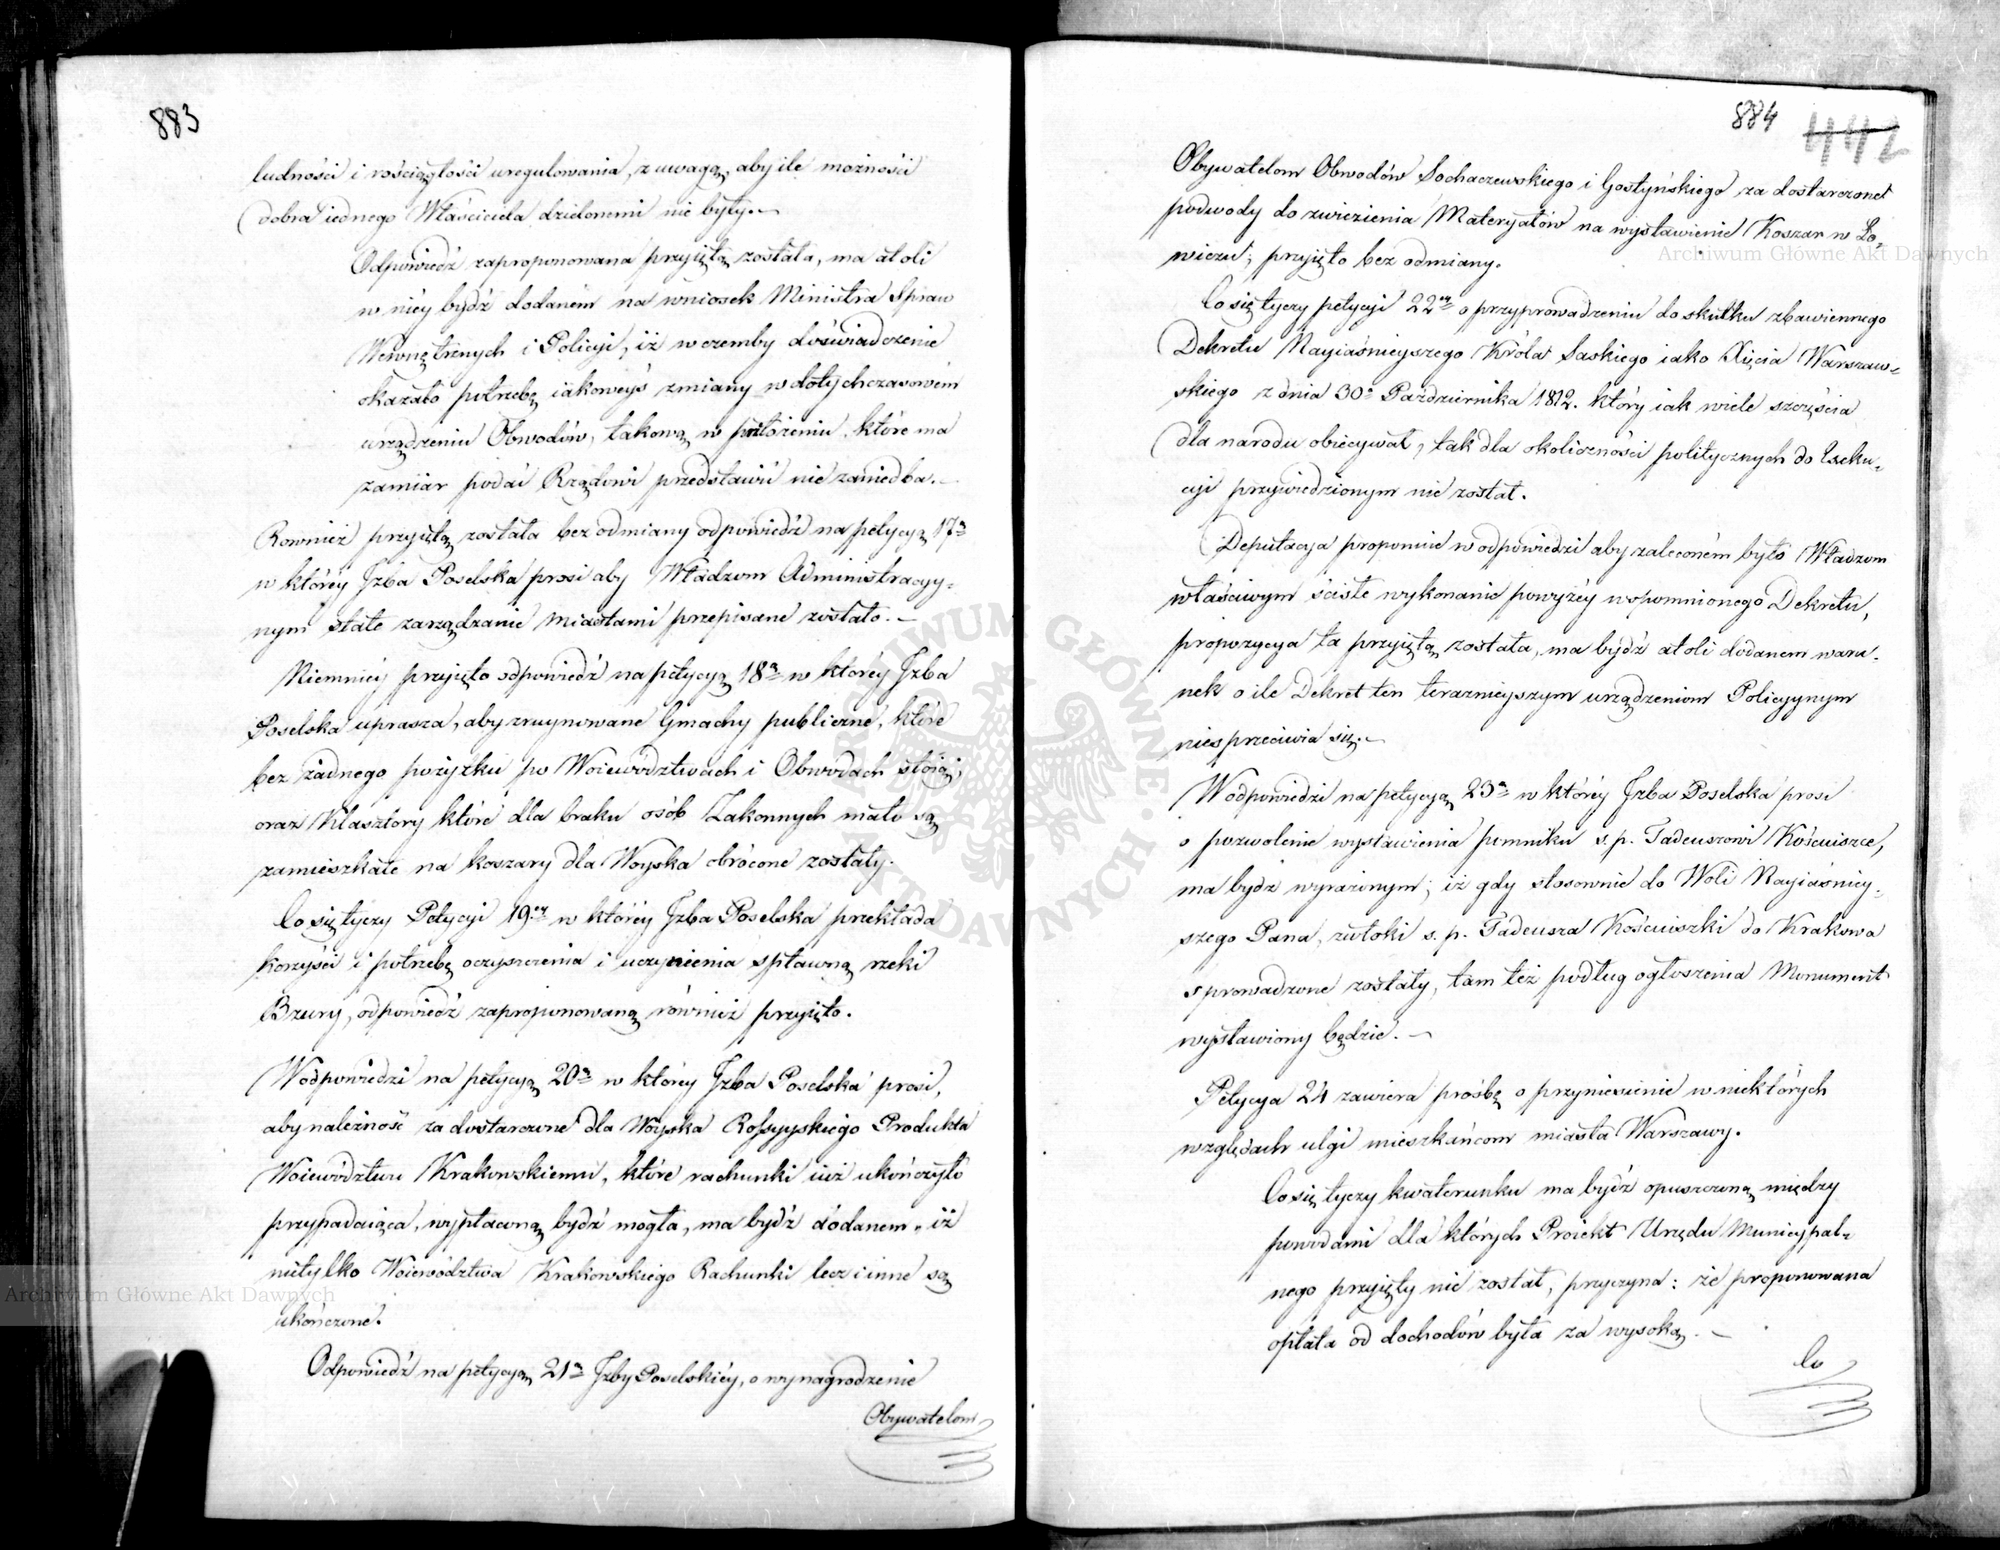 883
ludności i rościągłości uregulowania, z uwagą, aby ile możności
dobra iednego Właściciela dzielonemi nie były.—
Odpowiedź zaproponowana przyiętą została, ma atoli
w niéy bydź dodaném na wniosek Ministra Spraw
Wewnętrznych i Policyi, iż w czemby doświadczenie
okazało potrzebę iakowéyś zmiany w dotychczasowém
urządzeniu Obwodów, takową w przełożeniu, które ma
zamiar podać Rządowi przedstawić nie zaniedba.—
Rownież przyiętą została bez odmiany odpowiedź na petycyą 17ą
w któréy Izba Poselska prosi aby Władzom Administracyy-
nym stałe zarządzanie miastami przepisane zostało.—
Niemniéy przyięto odpowiedź na petycyą 18ą w któréy Izba
Poselska uprasza, aby zruynowane Gmachy publiczne, które
bez żadnego pożytku po Woiewództwach i Obwodach stoią,
oraz Klasztory które dla braku osób Zakonnych mało są
zamieszkałe na koszary dla Woyska obrócone zostały.
Co się tyczy Petycyi 19éy w któréy Izba Poselska przekłada
korzyści i potrzebę oczyszczenia i uczynienia spławną rzeki
Bzury, odpowiedź zaproponowaną również przyięto.
W odpowiedzi na petycyą 20ą w któréy Izba Poselska prosi,
aby należność za dostarczone dla Woyska Rossyyskiego Produkta
Woiewództwu Krakowskiemu, które rachunki iuż ukończyło
przypadaiąca, wypłacuną bydź mogła, ma bydź dodanem, iż
nietylko Woiewództwa Krakowskiego Rachunki lecz i inne są
ukończone.
Odpowiedź na petycyą 21ą Izby Poselskiéy, o wynagrodzenie
Obywatelom
884
442
Obywatelom Obwodów Sochaczewskiego i Gostyńskiego za dostarczone
podwody do zwiezienia Materyałów na wystawienie Koszar w Ło-
wiczu; przyięto bez odmiany.
Co się tyczy petycyi 22éy o przyprowadzeniu do skutku zbawiennego
Dekretu Nayiaśnieyszego Króla Saskiego iako Xięcia Warszaw-
skiego z dnia 30o Października 1812. który iak wiele szczęścia
dla narodu obiecywał, tak dla okoliczności politycznych do Exeku-
cyi przywiedzionym nie został.
Deputacya proponuie w odpowiedzi aby zaleconém było Władzom
właściwym ścisłe wykonanie powyżéy wspomnionego Dekretu,
propozycya ta przyiętą została, ma bydź atoli dodanem waru-
nek o ile Dekret ten teraznieyszym urządzeniom Policyynym
niesprzeciwia się.—
W odpowiedzi na petycyą 23ą w któréy Izba Poselska prosi
o pozwolenie wystawienia pomniku s. p. Tadeuszowi Kościuszce,
ma bydz wyrażonym; iż gdy stosownie do Woli Nayiaśniey-
szego Pana, zwłoki s. p. Tadeusza Kościuszki do Krakowa
sprowadzone zostały, tam też podług ogłoszenia Monument
wystawiony będzie.—
Petycya 24 zawiera prośbę o przyniesienie w niektórych
względach ulgi mieszkańcom miasta Warszawy.
Co się tyczy kwaterunku ma bydź opuszczoną między
powodami dla których Proiekt Urzędu Municypal-
nego przyięty nie został, przyczyna: że proponowana
opłata od dochodów była za wysoką.—
Co
Archiwum Główne Akt Dawnych
Archiwum Główne Akt Dawnych
ARCHIWUM GŁÓWNE AKT DAWNYCH